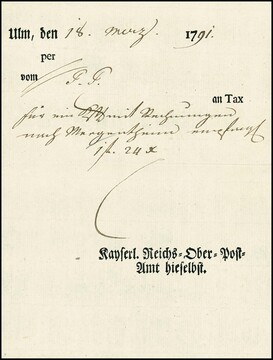 Ulm, den 18. Merz. 1791.
per
vom T. T.
an Tax
für ein mit Rechnungen
nach Mergentheim
1 f. 24 x
Kayserl. Reichs-Ober-Post-
Amt hieselbst.